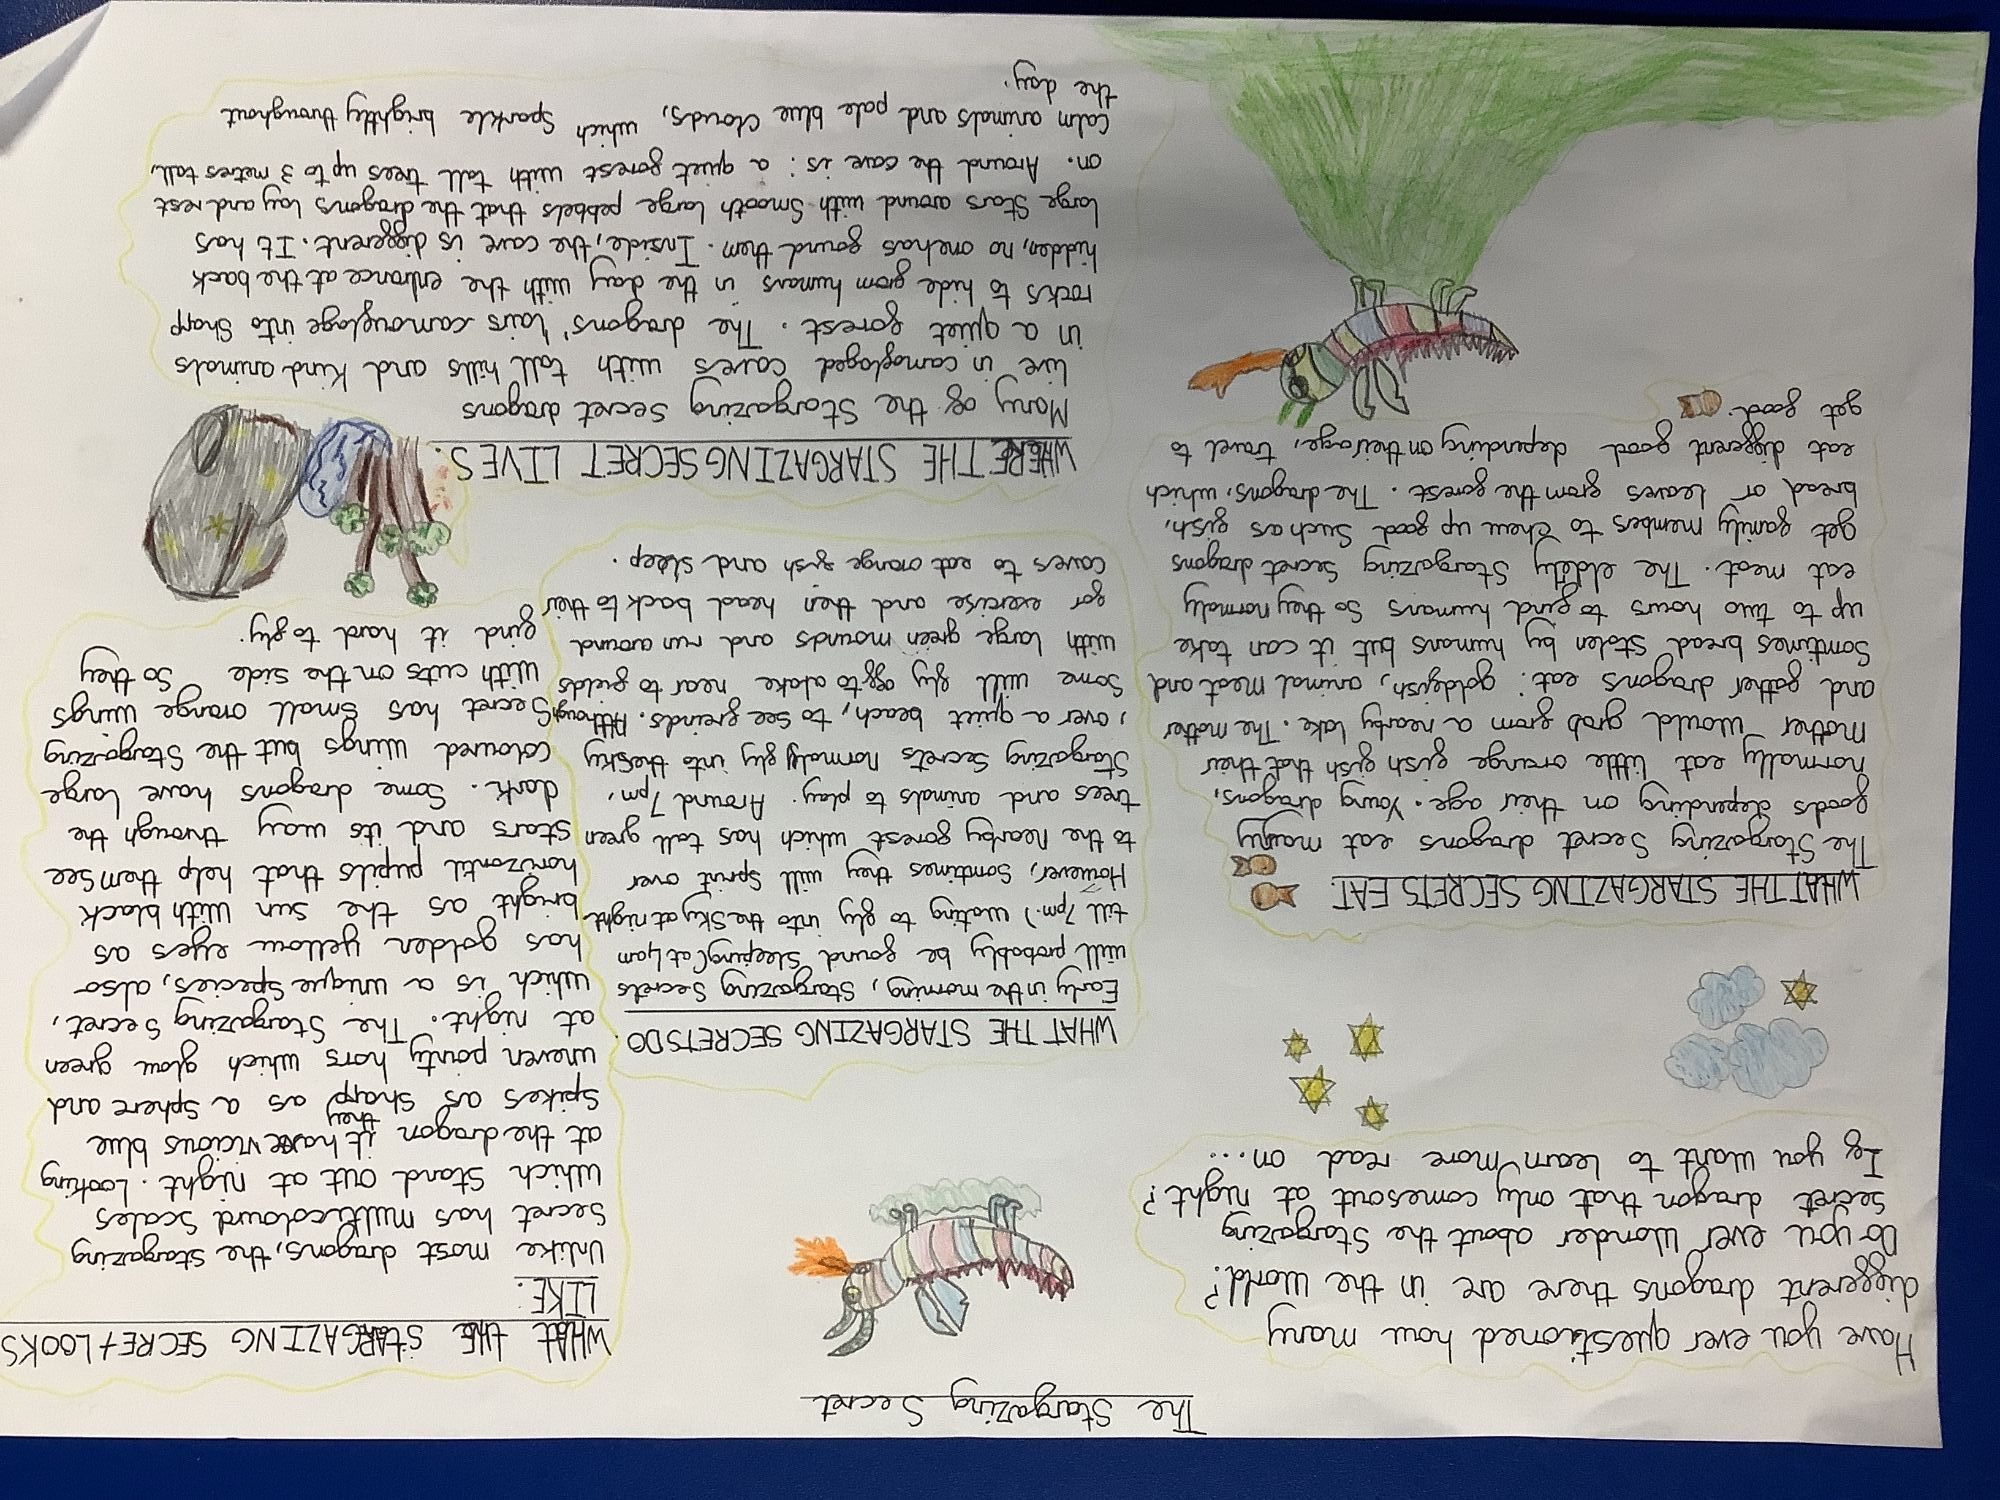 The Stargazing Secret
Have you ever questioned how many
different dragons there are in the world?
Do you ever wonder about the Stargazing
Secret dragon that only comesout at night?
If you want to learn more read on....
WHAT THE STARGAZING SECRETS EAT.
The Stargazing Secret dragons eat mainly
foods depending on their age. Young dragons,
normally eat little orange fish fish that their
Mother would grab from a nearby lake. The mother
and father dragons eat: goldfish, animal meat and
Somtimes bread stolen by humans but it can take
up to two hours to find humans so they normaly
eat meat. The eldely Stargazing Secret dragons
get family members to chew up food such as fish,
bread or leaves from the forest. The dragons, which
eat different food depending on their age, travel to
get food.
WHAT THE STARGAZING SECRETS DO.
Early in the morning, Stargazing Secrets
will probably be found sleeping (at 4am
till 7pm.) waiting to fly into the sky at night.
However, Somtimes they will Sprint over
to the nearby forest which has tall green
trees and animals to play. Around 7pm,
Stargazing Secrets normaly fly into the sky
, over a quiet beach, to see freinds. Although
Some will fly off to a lake near to fields
with large green mounds and run around
for exercise and then head back to their
caves to eat orange fish and sleep.
WHAT THE STARGAZING SECRET LOOKS
LIKE.
Unlike most dragons, the Stargazing
Secret has multicolourd Scales
which stand out at night. Looking
at the dragon it they have vicious blue
Spikes as sharp as a sphere and
uneven pointy hors which glow green
at night. The Stargazing Secret,
which is a unique species, also
has golden yellow eyes as
bright as the sun with black
horizontil pupils that help them see
stars and its way through the
dark. Some dragons have large
coloured wings but the Stargazing
Secret has small orange wings
with cuts on the side so they
find it hard to fly.
WHERE THE STARGAZING SECRET LIVES.
Many of the Stargazing Secret dragons
live in camoflaged caves with tall hills and kind animals
in a quiet forest. The dragons' lairs camouflage into sharp
rocks to hide from humans in the day with the entrance at the back
hidden, no one has found them. Inside, the cave is different. It has
large Stars around with Smooth large pebbels that the dragons lay and rest
on. Around the cave is: a quiet forest with tall trees up to 3 metres tall,
calm animals and pale blue clouds, which sparkle brightly throughout
the day.